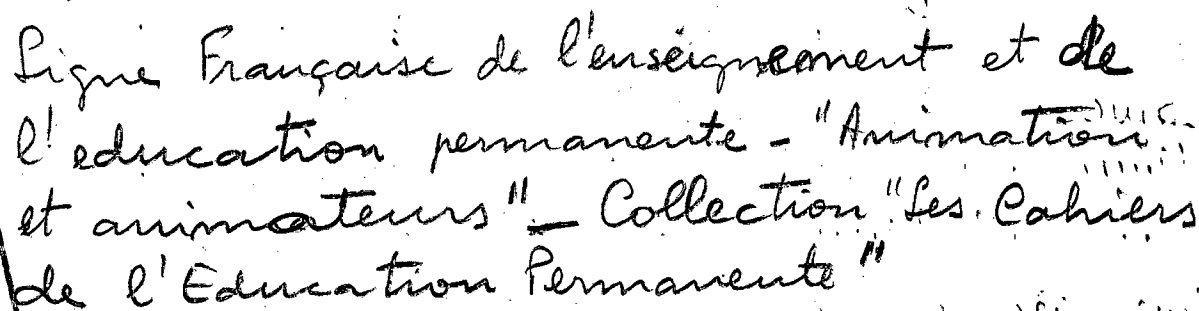 Ligne Française de l'enseignement et de
l'education permanente - "Animation
et animateurs" - Collection "Les Cahiers
de l'Education Permanente"